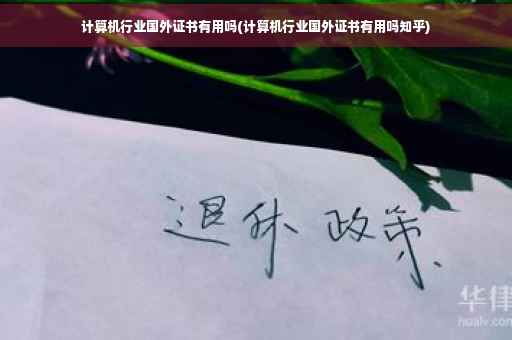 计算机行业国外证书有用吗(计算机行业国外证书有用吗知乎)
退休 政策
华律
hualv.com